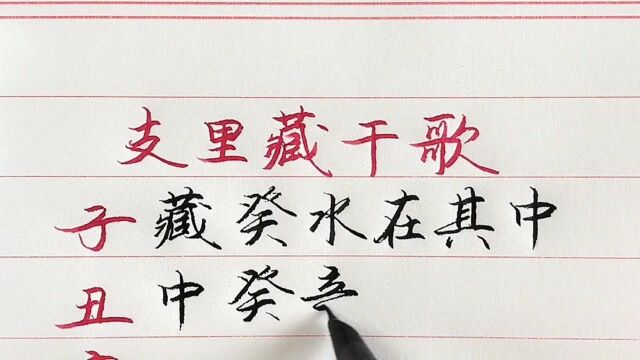 支里藏干歌
子藏癸水在其中
丑中癸